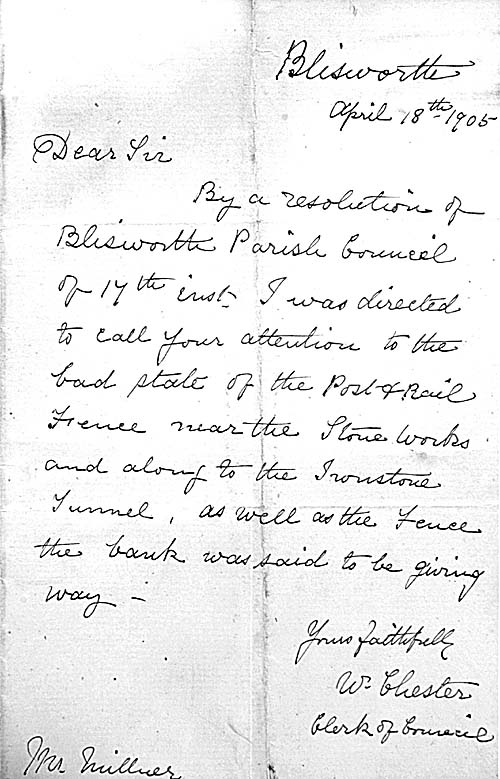 Blisworth
April 18th 1905
Dear Sir
By a resolution of
Blisworth Parish Council
of 17th inst. I was directed
to call your attention to the
bad state of the Post & Rail
Fence near the Stone Works
and along to the Ironstone
Tunnel, as well as the Fence
the bank was said to be giving
way –
Yours faithfully
Wm Chester
Clerk of Council
Mr Millner